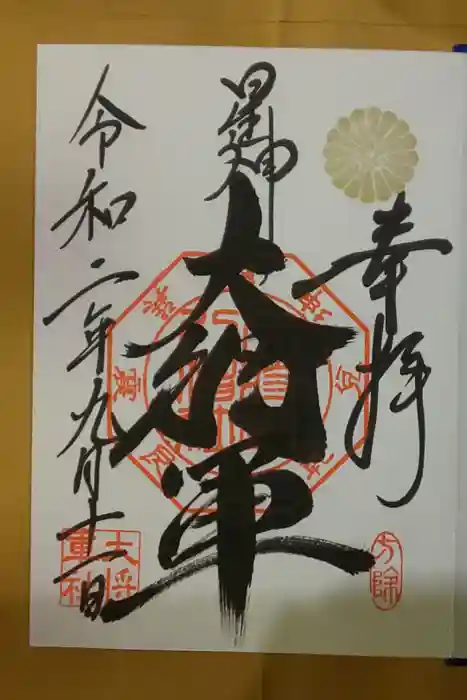 奉拝
方除
星神
大将軍
大将
軍社
令和二年九月十一日